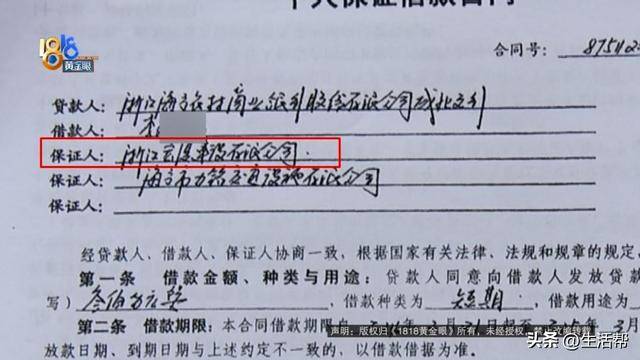 1818
黄金眼
个人保证借款合同
合同号：
贷款人：浙江海宁农村商业银行股份有限公司城北支行
借款人：
保证人：浙江 建设有限公司
保证人：海宁市力铭交通设施有限公司
保证人：
经贷款人、借款人、保证人协商一致，根据国家有关法律、法规和规章的规定，
第一条 借款金额、种类与用途：贷款人同意向借款人发放贷款
写）叁佰万元整 ，借款种类为 短期 ，借款用途为
第二条 借款期限：本合同借款期限自
放款日期、到期日期与上述约定不一致的，以借款借据为准。
声明：版权归《1818黄金眼》所有，未经授权，禁止改编转载
头条 @生活帮